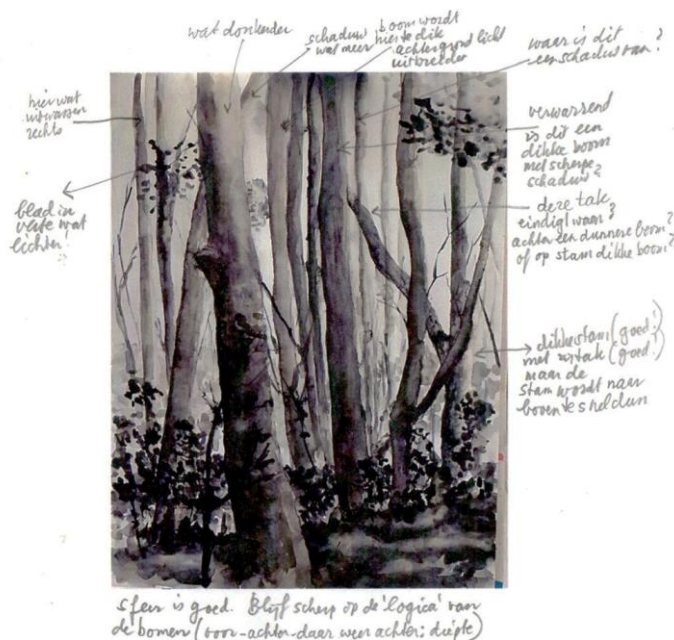 wat donkerder
schaduw
wat meer
boom wordt
hier te dik
achtergrond licht
uitbreider
waar is dit
een schaduw van?
hier wat
uitwassen
rechts
verwarrend
is dit een
dikke boom
met scherpe
schaduw?
blad in
verte wat
lichter!
deze tak
eindigt waar?
achter een dunnere boom?
of op stam dikke boom?
dikke stam (goed!)
met zijtak (goed!)
maar de
stam wordt naar
boven te snel dun
sfeer is goed. Blijf scherp op de 'logica' van
de bomen (voor-achter-daar weer achter; diepte)